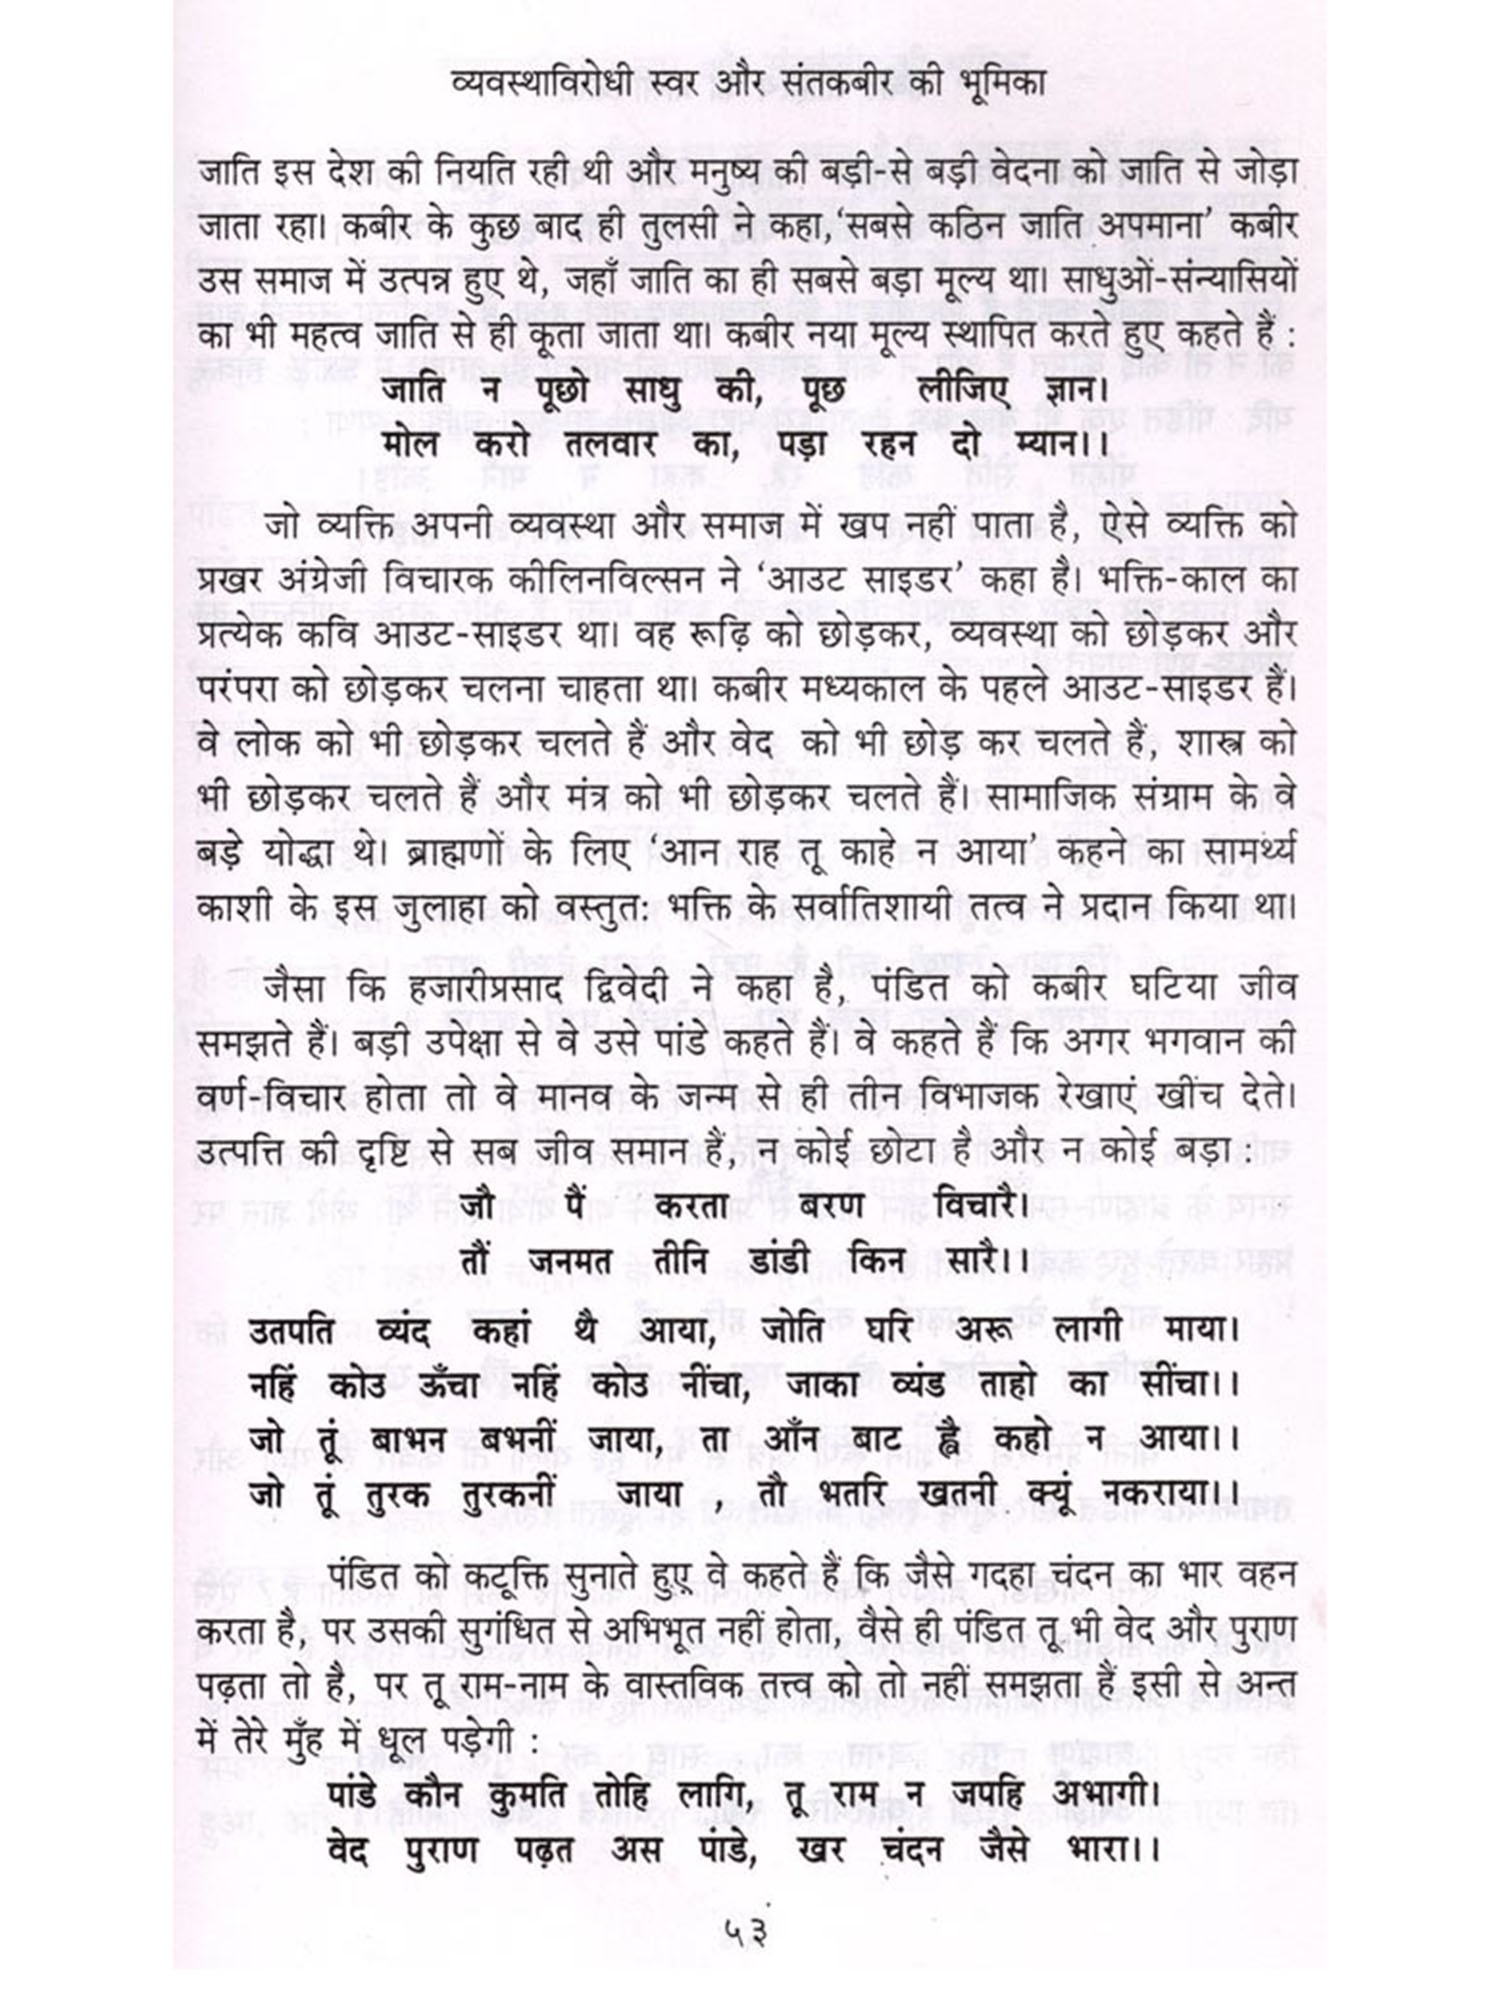 व्यवस्थाविरोधी स्वर और संतकबीर की भूमिका
जाति इस देश की नियति रही थी और मनुष्य की बड़ी-से बड़ी वेदना को जाति से जोड़ा
जाता रहा। कबीर के कुछ बाद ही तुलसी ने कहा,‘सबसे कठिन जाति अपमाना’ कबीर
उस समाज में उत्पन्न हुए थे, जहाँ जाति का ही सबसे बड़ा मूल्य था। साधुओं-संन्यासियों
का भी महत्व जाति से ही कूता जाता था। कबीर नया मूल्य स्थापित करते हुए कहते हैं :
जाति न पूछो साधु की, पूछ लीजिए ज्ञान।
मोल करो तलवार का, पड़ा रहन दो म्यान।।
जो व्यक्ति अपनी व्यवस्था और समाज में खप नहीं पाता है, ऐसे व्यक्ति को
प्रखर अंग्रेजी विचारक कीलिनविल्सन ने ‘आउट साइडर’ कहा है। भक्ति-काल का
प्रत्येक कवि आउट-साइडर था। वह रूढ़ि को छोड़कर, व्यवस्था को छोड़कर और
परंपरा को छोड़कर चलना चाहता था। कबीर मध्यकाल के पहले आउट-साइडर हैं।
वे लोक को भी छोड़कर चलते हैं और वेद को भी छोड़ कर चलते हैं, शास्त्र को
भी छोड़कर चलते हैं और मंत्र को भी छोड़कर चलते हैं। सामाजिक संग्राम के वे
बड़े योद्धा थे। ब्राह्मणों के लिए ‘आन राह तू काहे न आया’ कहने का सामर्थ्य
काशी के इस जुलाहा को वस्तुत: भक्ति के सर्वातिशायी तत्व ने प्रदान किया था।
जैसा कि हजारीप्रसाद द्विवेदी ने कहा है, पंडित को कबीर घटिया जीव
समझते हैं। बड़ी उपेक्षा से वे उसे पांडे कहते हैं। वे कहते हैं कि अगर भगवान की
वर्ण-विचार होता तो वे मानव के जन्म से ही तीन विभाजक रेखाएं खींच देते।
उत्पत्ति की दृष्टि से सब जीव समान हैं, न कोई छोटा है और न कोई बड़ा :
जौ पैं करता बरण विचारै।
तौं जनमत तीनि डांडी किन सारै।।
उतपति व्यंद कहां थै आया, जोति घरि अरू लागी माया।
नहिं कोउ ऊँचा नहिं कोउ नींचा, जाका व्यंड ताहो का सींचा।।
जो तूं बाभन बभनीं जाया, ता आँन बाट ह्वै कहो न आया।।
जो तूं तुरक तुरकनीं जाया , तौ भतरि खतनी क्यूं नकराया।।
पंडित को कटूक्ति सुनाते हुए वे कहते हैं कि जैसे गदहा चंदन का भार वहन
करता है, पर उसकी सुगंधित से अभिभूत नहीं होता, वैसे ही पंडित तू भी वेद और पुराण
पढ़ता तो है, पर तू राम-नाम के वास्तविक तत्त्व को तो नहीं समझता हैं इसी से अन्त
में तेरे मुँह में धूल पड़ेगी :
पांडे कौन कुमति तोहि लागि, तू राम न जपहि अभागी।
वेद पुराण पढ़त अस पांडे, खर चंदन जैसे भारा।।
५३